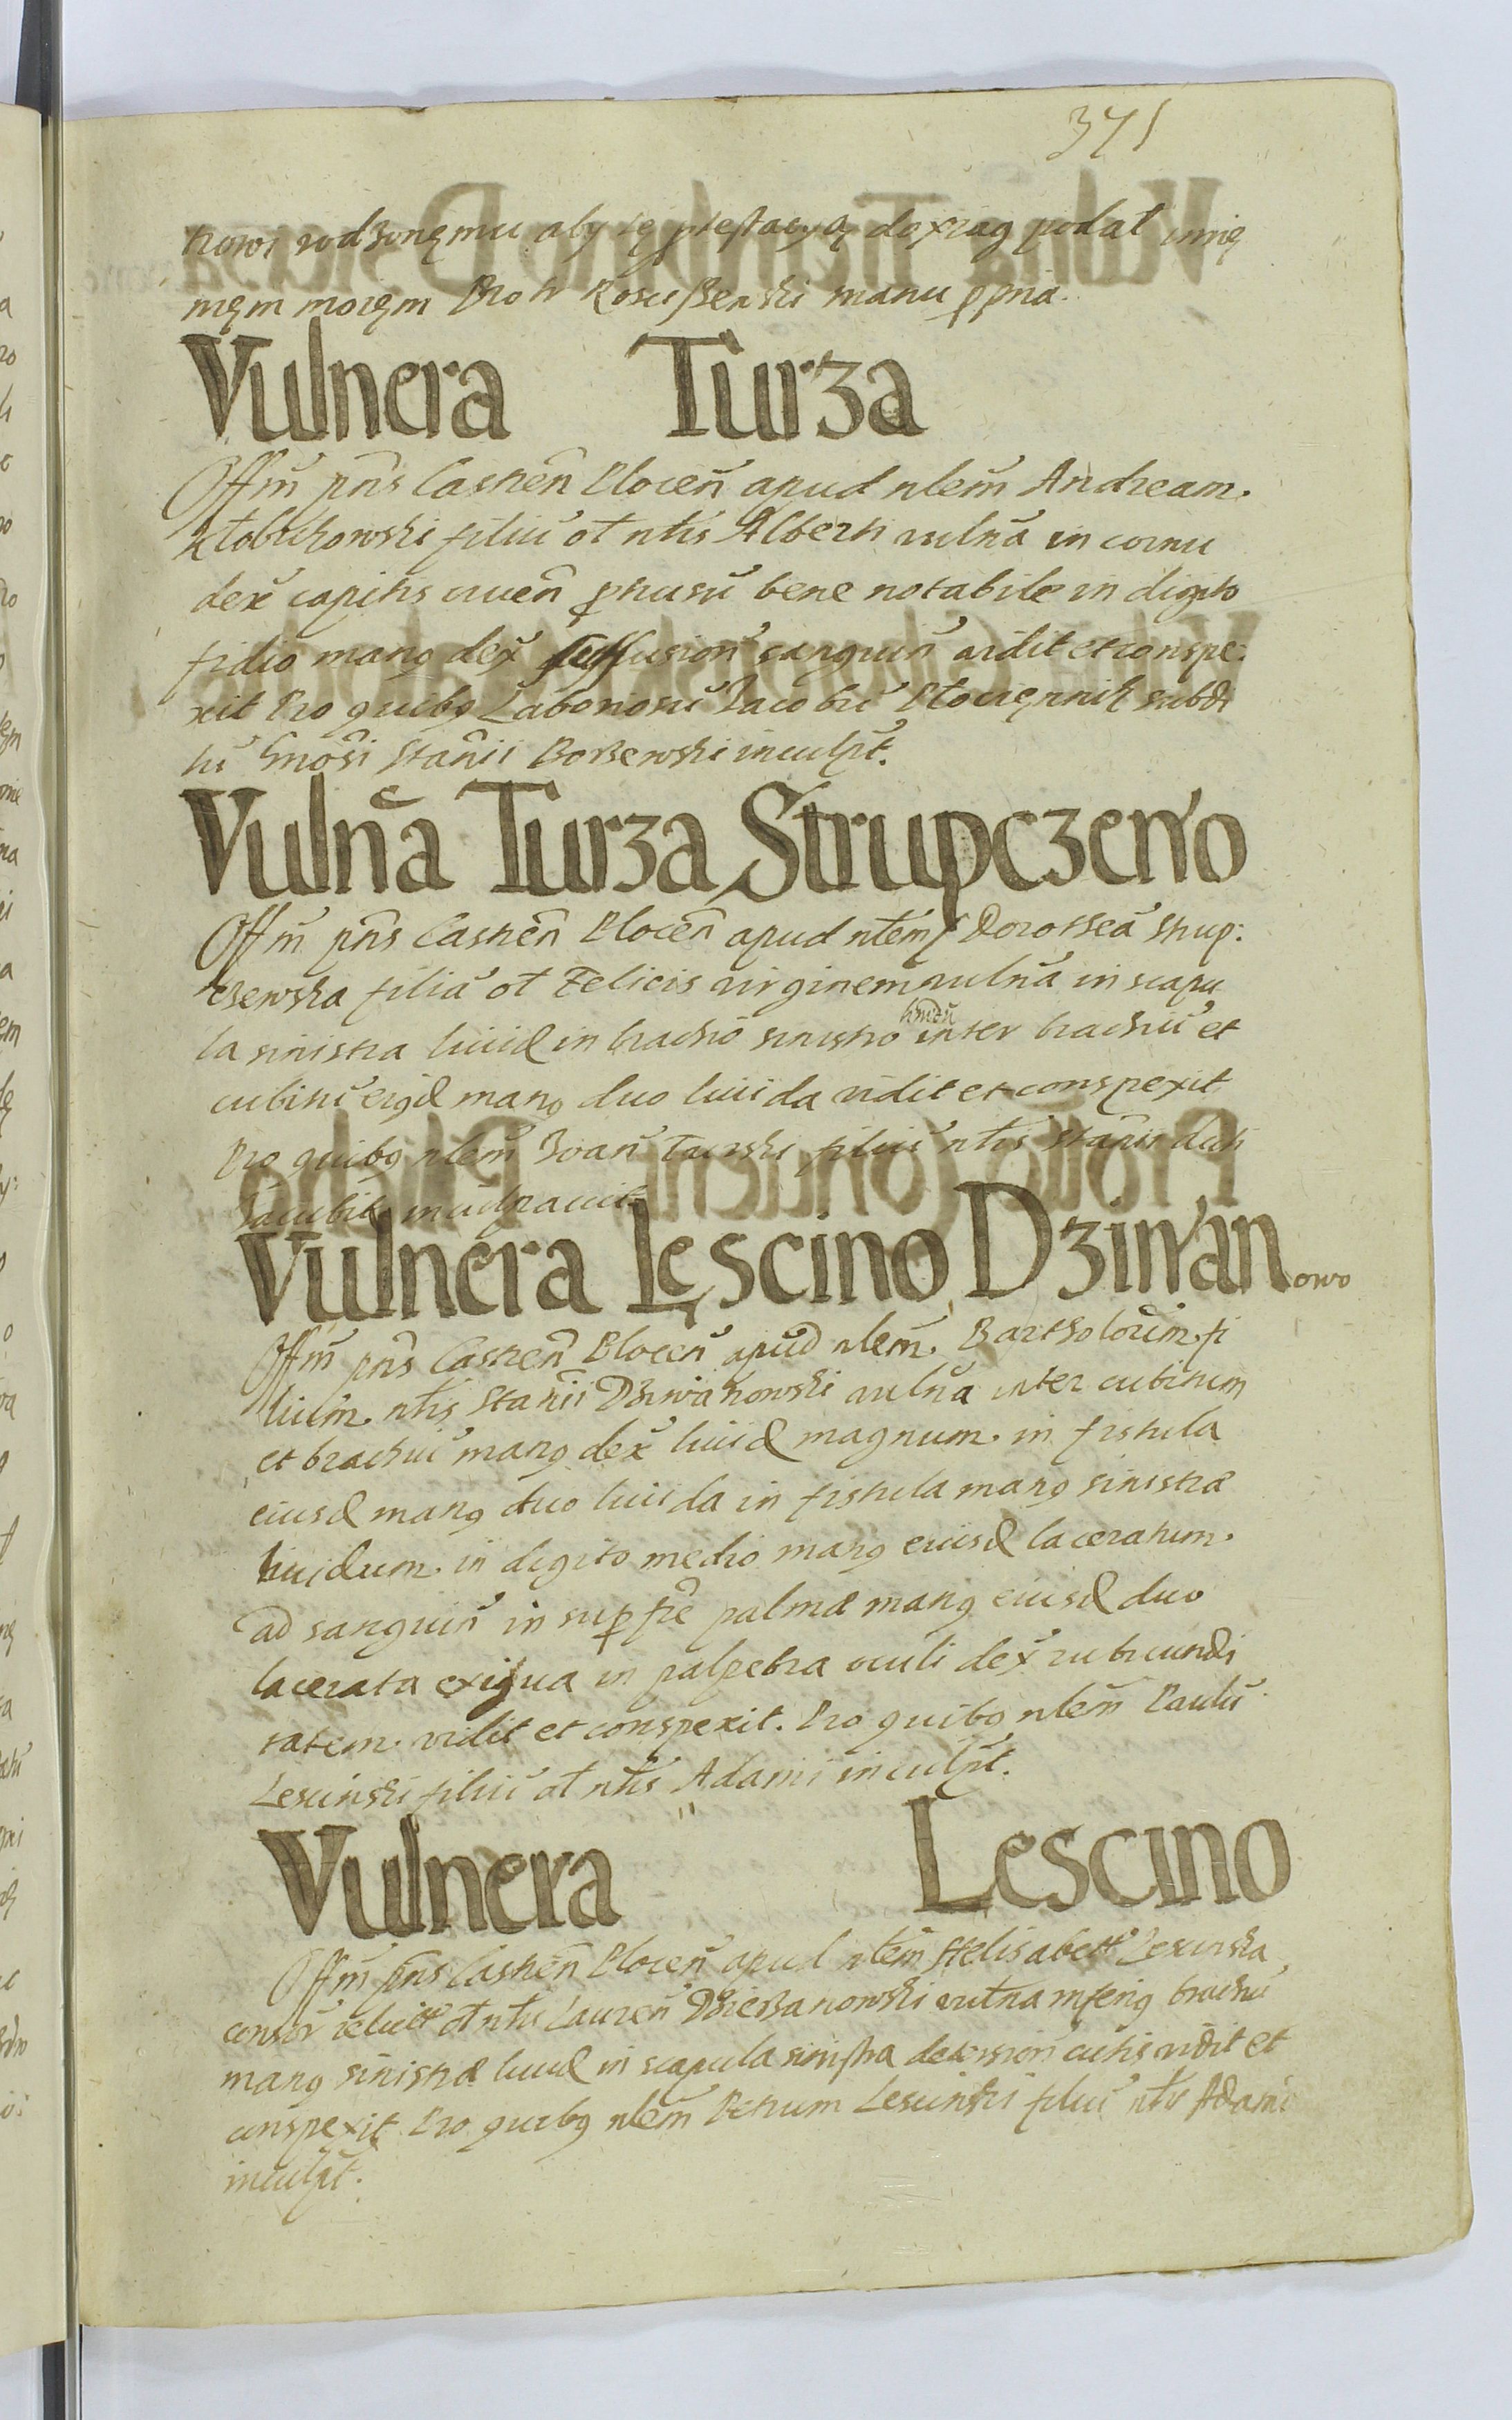 371
rodzonemu aby tę protestacyą do xiag podał imię
niem moiem Piotr manu ppria.
Vulnera Turza
Offm pñs Castren Plocen apud nlem Andream.
filiu ol nlis Alberti vulna in cornu
dex capitis bene notabile in digito
man9 dex suffusion sanguin vidit et conspe:
xit Pro quib9 Laboriosu Jacobu subdi
tu Gnosi Stanii Borzewski inculpt.
Vulna Turza Strupczewo
Offm pñs Castren Plocen apud nlem Dorotheã Strup:
czewska filiã ol Felicis virginem vulna in scapu
la sinistra livid in brachio sinistro inter brachiu et
cubitu eiusd man9 duo livida vidit et conspexit
Pro quib9 nlem Joan Turski filiu nlis Stanii dicti
inculpavit
Vulnera Lęscino Dziwan owo
Offm pñs Castren Plocen apud nlem. Bartholom. fi
lium. nlis Stanii Dziwanowski vulna inter cubitum
et brachiu man9 dex livid magnum. in fistula
eiusd man9 duo livida in fistula man9 sinistræ
lividum. in digito medio man9 eiusd laceratum.
ad sanguin in supfie palmæ man9 eiusd duo
lacerata exigua in palpebra oculi dex rubicundi
tatem. vidit et conspexit. Pro quib9 nlem Paulu
Lescinski filiu ol nlis Adami inculpt.
Vulnera Lescino
Offm pñs Castren Plocen apud nlem Helisabeth Lescinska
consor relict ol nlis Lauren vulna brachii
man9 sinistræ livid in scapula sinistra cutis vidit et
conspexit Pro quib9 nlem Petrum Lescinski filiu nlis Adami
inculpt.